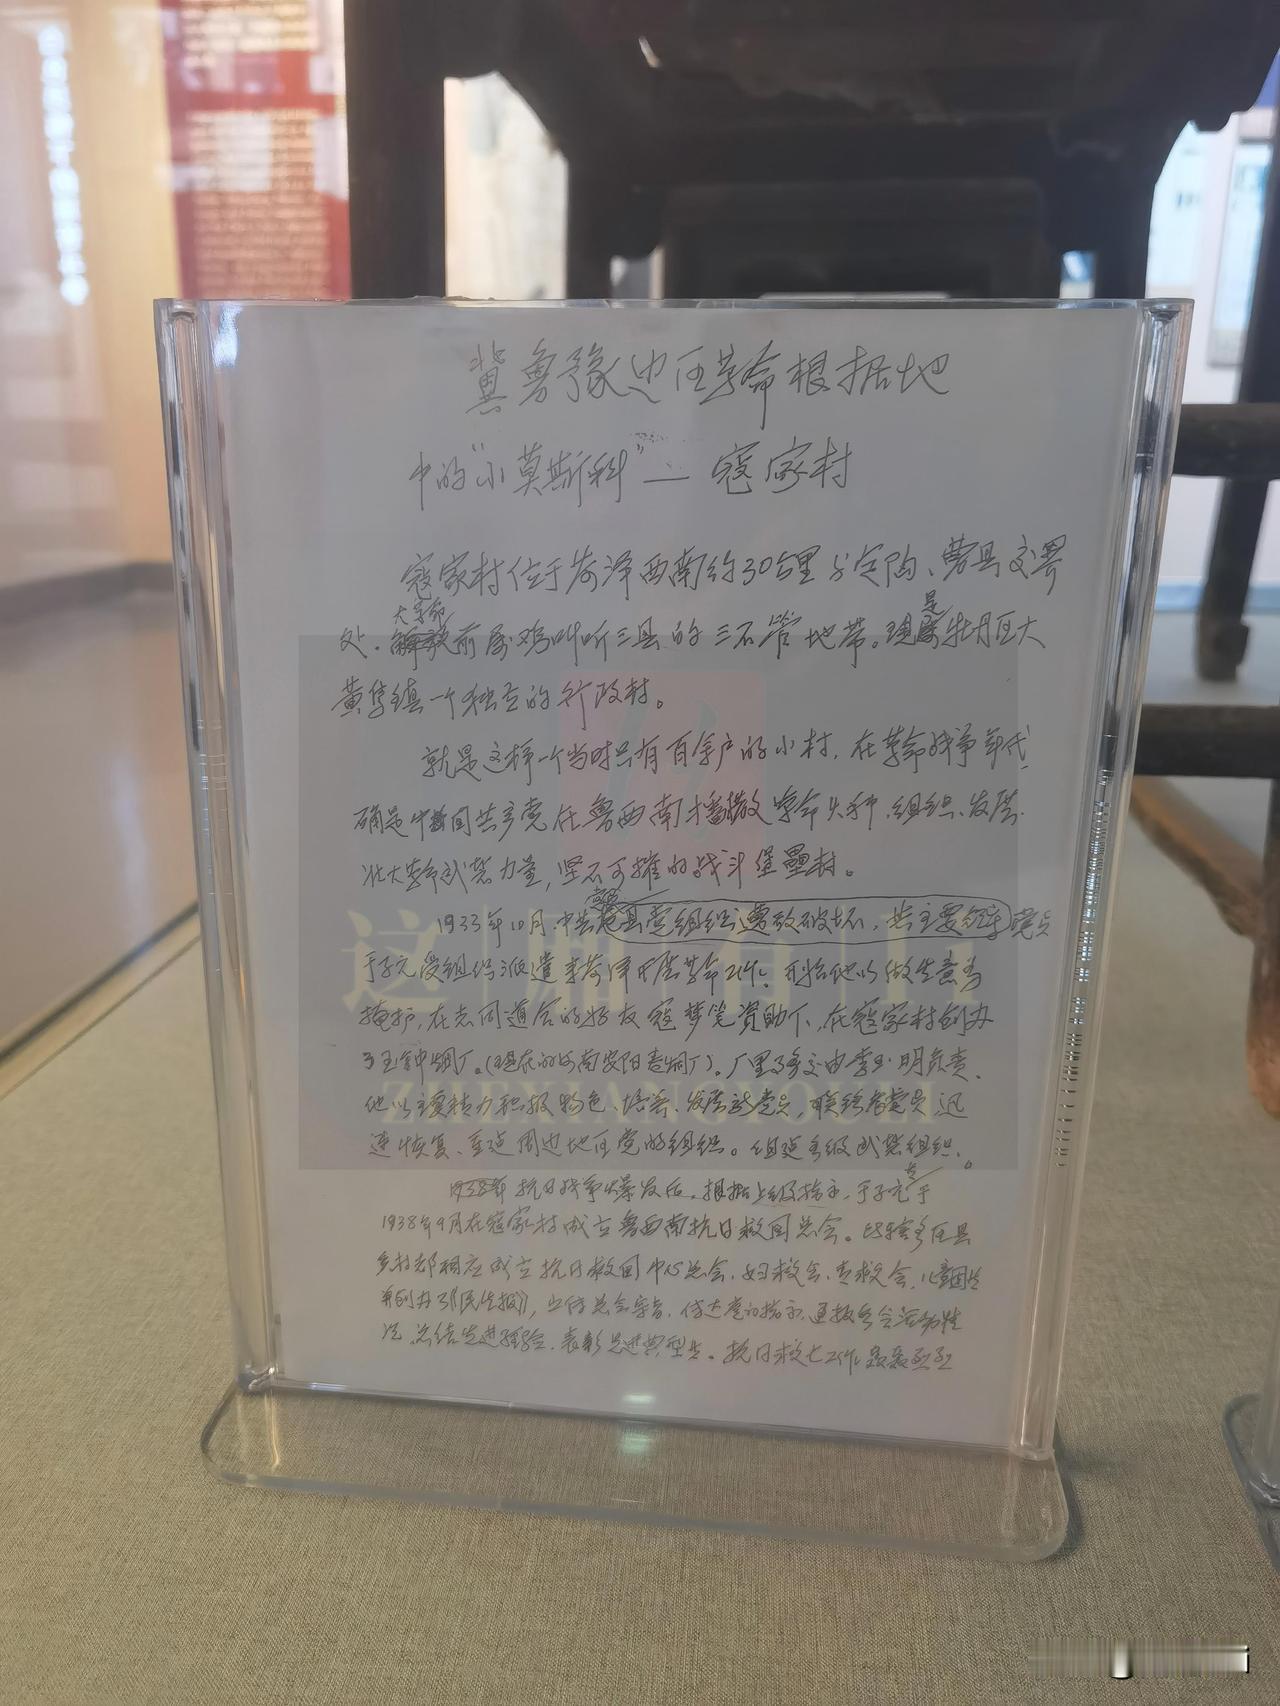 冀鲁豫边区革命根据地
中的“小莫斯科”— 寇家村
寇家村位于菏泽西南约30公里与定陶、曹县交界
大革命 是
处。解放前属鸡叫听三县的三不管地带。现属牡丹区大
黄集镇一个独立的行政村。
就是这样一个当时只有百余户的小村,在革命战争年代,
确是中国共产党在鲁西南播撒革命火种、组织、发展、
壮大革命武装力量,坚不可摧的战斗堡垒村。
1933年10月,中共 县党组织遭敌破坏,其主要领导党员
于子元受组织派遣来菏泽开展革命工作。开始他以做生意为
掩护,在志同道合的好友寇梦笔资助下,在寇家村创办
了玉钟烟厂。(现在的河南安阳卷烟厂)。厂里事务交由李 明负责,
他以主要精力积极物色、培养、发展新党员,联络老党员迅
速恢复、重建周边地区党的组织。组建各级武装组织。
抗日战争爆发后,根据上级指示,于子元于
1938年9月在寇家村成立鲁西南抗日救国总会。 各区县
乡村都相应成立抗日救国中心总会、妇救会、青救会、儿童团
并创办了《民生报》, 传达党的指示,通报各会活动情
况,总结先进经验,表彰先进典型 。抗日救亡工作轰轰烈烈
这 厢 有 Li
ZHEXIANGYOULI